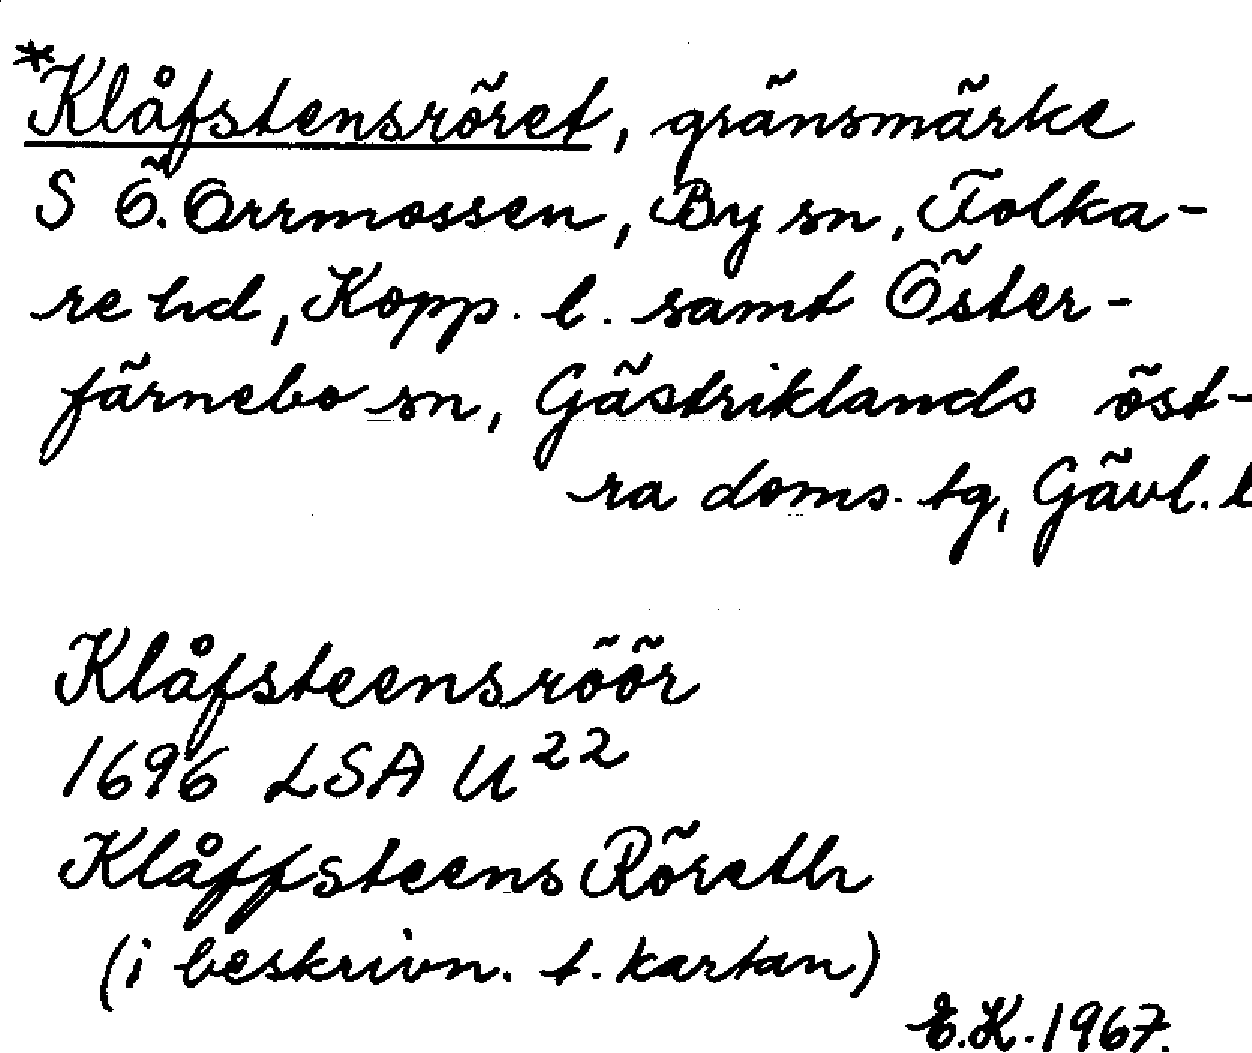 *Klåfstensröret, gränsmärke
S Ö. Orrmossen, By sn, Folka-
re hd, Kopp. l. samt Öster-
färnebo sn, Gästriklands öst-
ra doms. tg, Gävl. l
Klåfsteensröör
1696 LSA U²²
Klåffsteens Röreth
(i beskrivn. t. kartan)
E.K. 1967.